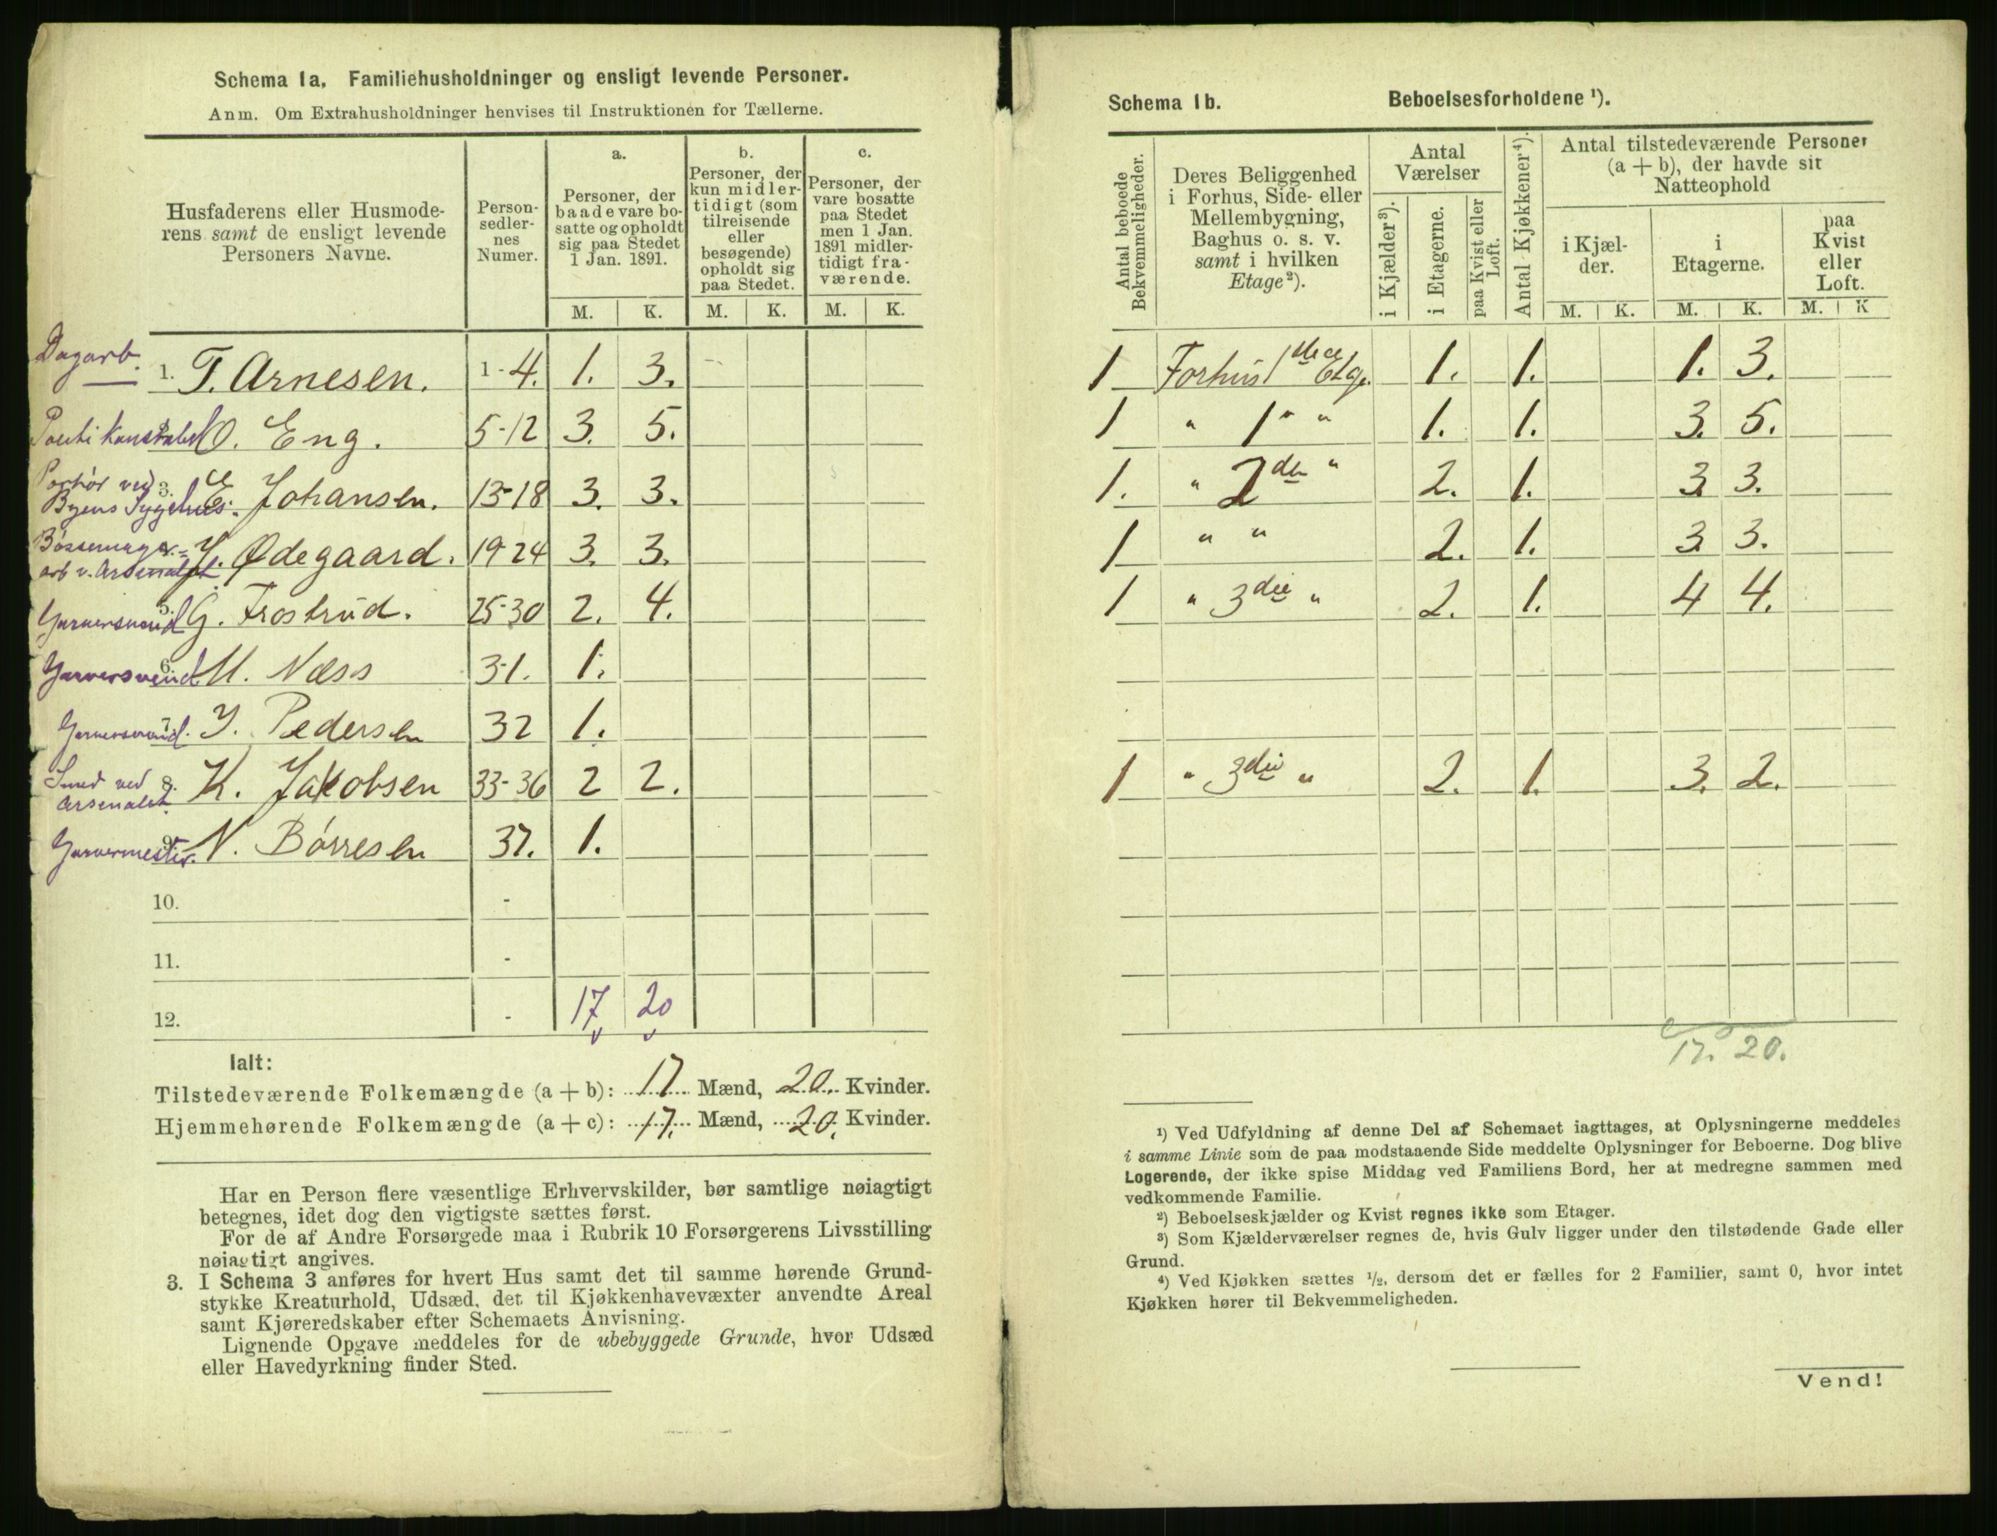 Schema 1a. Familiehusholdninger og ensligt levende Personer.
Anm. Om Extrahusholdninger henvises til Instruktionen for Tællerne.
Husfaderens eller Husmode-
rens samt de ensligt levende
Personers Navne.
Person-
sedler-
nes
Numer.
a.
Personer, der
baade vare bo-
satte og opholdt
sig paa Stedet
1 Jan. 1891.
b.
Personer, der
kun midler-
tidigt (som
tilreisende
eller
besøgende)
opholdt sig
paa Stedet.
c.
Personer, der
vare bosatte
paa Stedet
men 1 Jan.
1891 midler-
tidigt fra-
værende.
M. K. M. K. M. K.
Dagarb. 1. T. Arnesen. 1-4. 1. 3.
Politikonstabel O. Eng. 5-12 3. 5.
Portør ved
Byens Sygehus. 3. E. Johansen. 13-18 3. 3.
Bøssemager-
arb v. Arsenalet J. Ødegaard. 19-24 3. 3.
Garversvend 5. G. Frostrud. 25-30 2. 4.
Garversvend 6. M. Næss 31. 1.
Garversvend. 7. J. Pedersen 32 1.
Smed ved
Arsenalet. 8. K. Jakobsen 33-36 2 2.
Garvermester. 9. N. Børresen 37. 1.
10. -
11. -
12. - 17 20
Ialt:
Tilstedeværende Folkemængde (a + b): 17 Mænd, 20. Kvinder.
Hjemmehørende Folkemængde (a + c): 17. Mænd, 20. Kvinder.
Har en Person flere væsentlige Erhvervskilder, bør samtlige nøiagtigt
betegnes, idet dog den vigtigste sættes først.
For de af Andre Forsørgede maa i Rubrik 10 Forsørgerens Livsstilling
nøiagtigt angives.
3. I Schema 3 anføres for hvert Hus samt det til samme hørende Grund-
stykke Kreaturhold, Udsæd, det til Kjøkkenhavevæxter anvendte Areal
samt Kjøreredskaber efter Schemaets Anvisning.
Lignende Opgave meddeles for de ubebyggede Grunde, hvor Udsæd
eller Havedyrkning finder Sted.
Schema 1b. Beboelsesforholdene ¹).
Antal beboede
Bekvemmeligheder.
Deres Beliggenhed
i Forhus, Side- eller
Mellembygning,
Baghus o. s. v.
samt i hvilken
Etage ²).
Antal
Værelser
i Kjælder ³).
i Etagerne.
paa Kvist eller
Loft.
Antal Kjøkkener ⁴).
Antal tilstedeværende Personer
(a + b), der havde sit
Natteophold
i Kjæl-
der.
i
Etagerne.
paa
Kvist
eller
Loft.
M. K. M. K. M. K
1 Forhus 1ste Etge. 1. 1. 1. 3.
1 " 1 " " 1. 1. 3. 5.
1. " 2den " 2. 1. 3 3.
1 " " 2. 1. 3 3.
1 " 3die " 2. 1. 4 4.
1 " 3die " 2. 1. 3. 2.
17. 20.
¹) Ved Udfyldning af denne Del af Schemaet iagttages, at Oplysningerne meddeles
i samme Linie som de paa modstaaende Side meddelte Oplysninger for Beboerne. Dog blive
Logerende, der ikke spise Middag ved Familiens Bord, her at medregne sammen med
vedkommende Familie.
²) Beboelseskjælder og Kvist regnes ikke som Etager.
³) Som Kjælderværelser regnes de, hvis Gulv ligger under den tilstødende Gade eller
Grund.
⁴) Ved Kjøkken sættes ½, dersom det er fælles for 2 Familier, samt 0, hvor intet
Kjøkken hører til Bekvemmeligheden.
Vend!